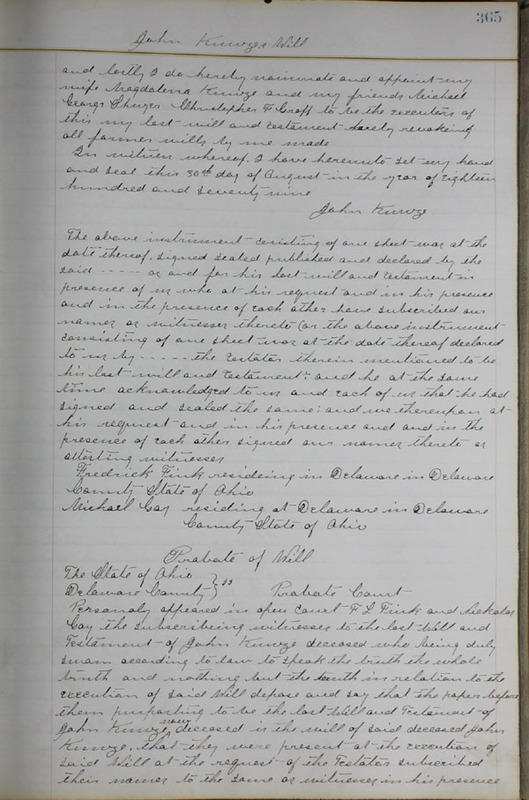 365
John Kunze's Will
and lastly I do hereby nominate and appoint my
wife Magdalena Kunze and my friends Michael
George Christopher F Graff to be the executors of
this my last will and testament hereby revoking
all former wills by me made
In witness whereof, I have hereunto set my hand
and seal this 30th day of August in the year of eighteen
hundred and seventy nine
John Kunze
The above instrument consisting of one sheet was at the
date thereof signed sealed published and declared by the
said - - - - - as and for his last will and testament in
presence of us who at his request and in his presence
and in the presence of each other have subscribed our
names as witnesses thereto (or the above instrument
consisting of one sheet was at the date thereof declared
to us by - - - - - the testator therein mentioned to be
his last will and testament: and he at the same
time acknowledged to us and each of us that he had
signed and sealed the same: and we thereupon at
his request and in his presence and in the
presence of each other signed our names thereto as
attesting witnesses
Fredrick Fink resideing in Delaware in Delaware
County State of Ohio
Michael Gay residing at Delaware in Delaware
County State of Ohio
Probate of Will
The State of Ohio
Delaware County } ss Probate Court
Personaly appeared in open court F L Fink and
Gay the subscribeing witnesses to the last Will and
Testament of John Kunze deceased who being duly
sworn according to law to speak the truth the whole
truth and nothing but the truth in relation to the
execution of said Will depose and say that the paper before
them purporting to be the last Will and Testament of
John Kunze now deceased is the will of said deceased John
Kunze, that they were present at the execution of
said Will at the request of the Testator subscribed
their names to the same as witnesses in his presence